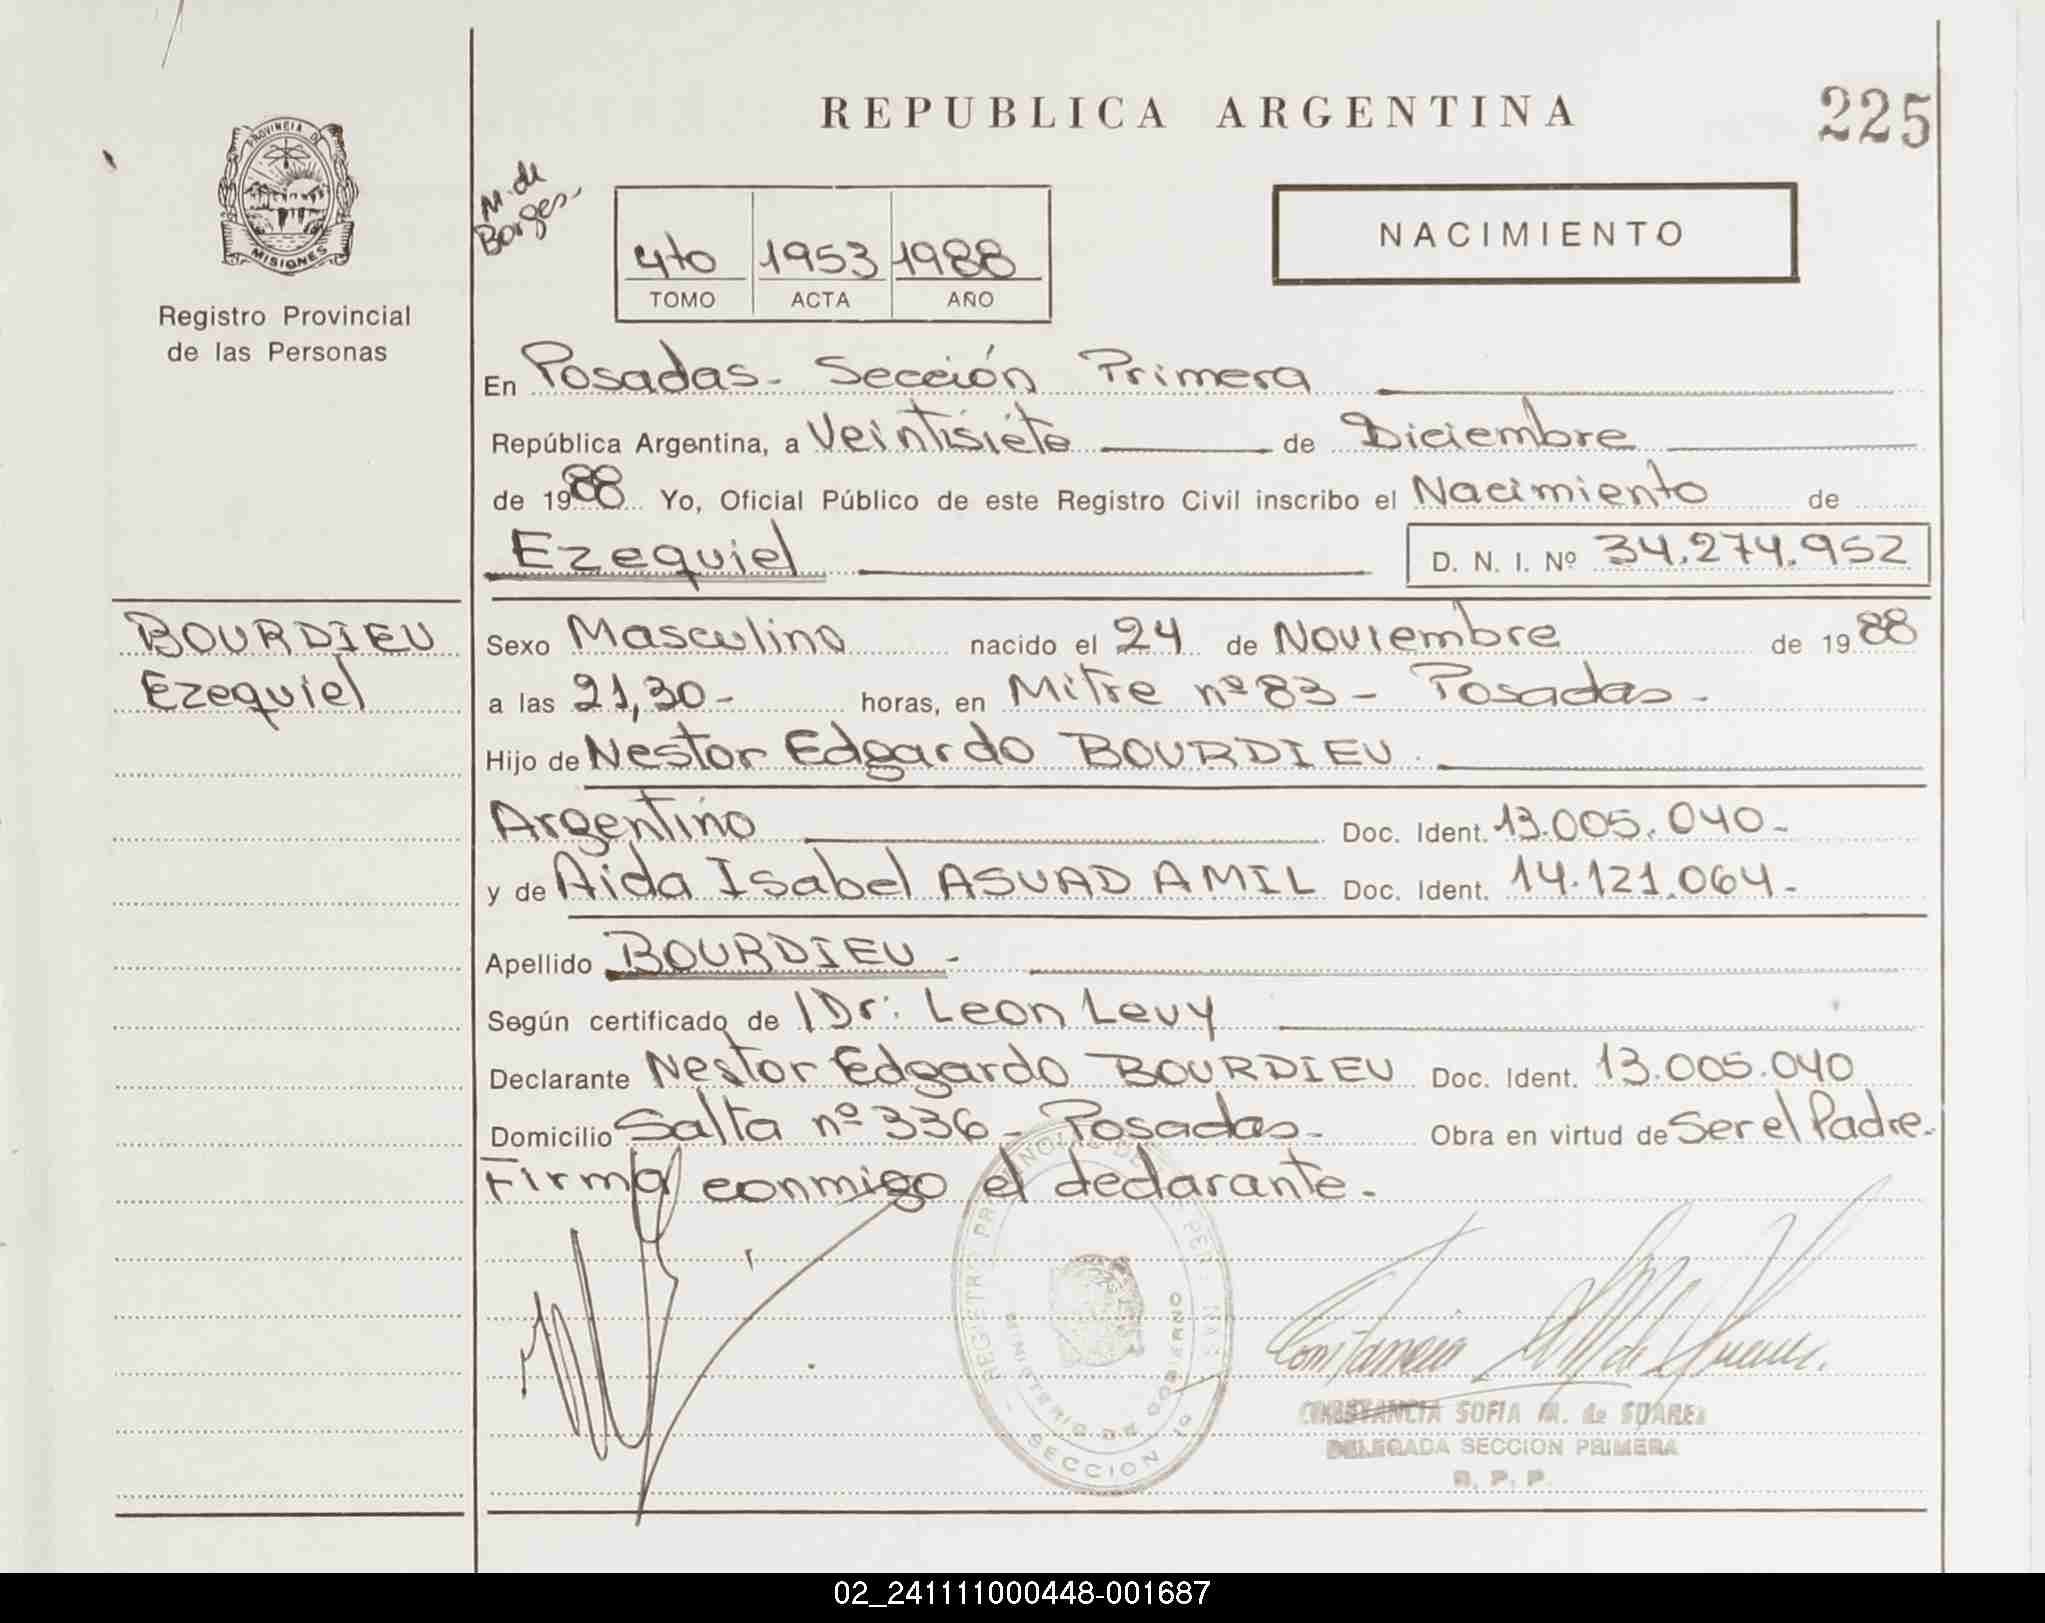 REPUBLICA ARGENTINA
225
PROVINCIA DE
MISIONES
Registro Provincial
de las Personas
M. de
Borges-
4to 1953 1988
TOMO ACTA AÑO
NACIMIENTO
En Posadas- Sección Primera
República Argentina, a Veintisiéte de Diciembre
de 1988 Yo, Oficial Público de este Registro Civil inscribo el Nacimiento de
Ezequiel D. N. I. Nº 34.274.952
BOURDIEU
Ezequiel
Sexo Masculino nacido el 24 de Noviembre de 1988
a las 21,30- horas, en Mitre nº 83 - Posadas -
Hijo de Nestor Edgardo BOURDIEU.
Argentino Doc. Ident. 13.005.040-
y de Aida Isabel ASUAD AMIL Doc. Ident. 14.121.064-
Apellido BOURDIEU -
Según certificado de Dr: Leon Levy
Declarante Nestor Edgardo BOURDIEU Doc. Ident. 13.005.040
Domicilio Salta nº 336 - Posadas- Obra en virtud de Ser el Padre.
Firma conmigo el declarante.
MINISTERIO DE GOBIERNO
SECCION 1ª
CONSTANCIA SOFIA M. de SUAREZ
DELEGADA SECCION PRIMERA
R. P. P.
02_241111000448-001687